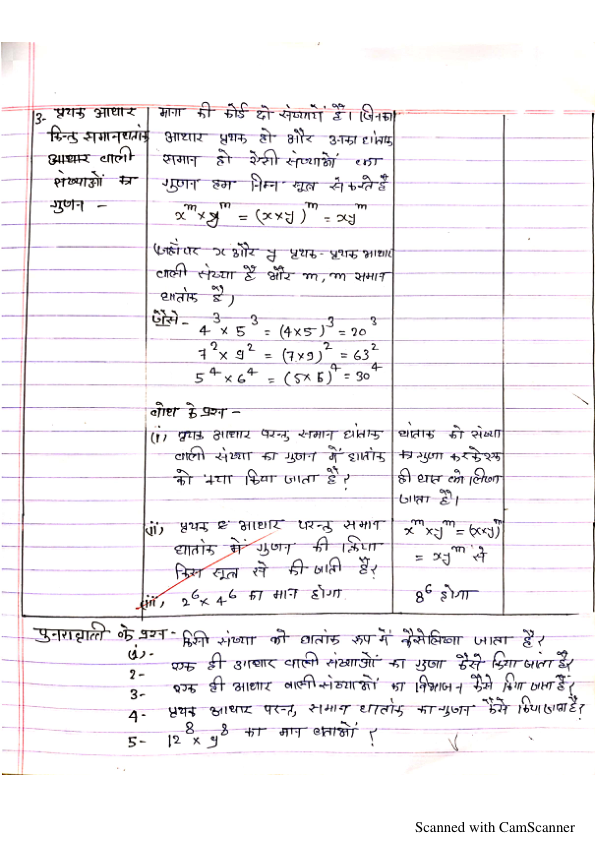 3- प्रथक आधार
किन्तु समानघातांक
आधार वाली
संख्याओं का
गुणन -
माना की कोई दो संख्यायें है। जिनका
आधार प्रथक हो और उनका घातांक
समान हो ऐसी संख्याओं का
गुणन हम निम्न सूत्र से करते है
x^m × y^m = (x×y)^m = xy^m
जहाँ पर x और y प्रथक-प्रथक आधार
वाली संख्या है और m, m समान
घातांक है,
जैसे- 4^3 × 5^3 = (4×5)^3 = 20^3
7^2 × 9^2 = (7×9)^2 = 63^2
5^4 × 6^4 = (5×6)^4 = 30^4
बोध के प्रश्न -
(i) प्रथक आधार परन्तु समान घातांक
वाली संख्या का गुणन में घातांक
को क्या किया जाता है?
घातांक को संख्या
का गुणा करके एक
ही घात को लिखा
जाता है।
(ii) प्रथक आधार परन्तु समान
घातांक में गुणन की क्रिया
किस सूत्र से की जाती है?
x^m × y^m = (x×y)^m
= xy^m से
(iii) 2^6 × 4^6 का मान होगा
8^6 होगा
पुनरावृत्ति के प्रश्न-
(1)- किसी संख्या को घातांक रूप में कैसे लिखा जाता है?
2- एक ही आधार वाली संख्याओं का गुणा कैसे किया जाता है?
3- एक ही आधार वाली संख्याओं का विभाजन कैसे किया जाता है?
4- प्रथक आधार परन्तु समान घातांक का गुणन कैसे किया जाता है?
5- 12^8 × y^8 का मान बताओं?
Scanned with CamScanner